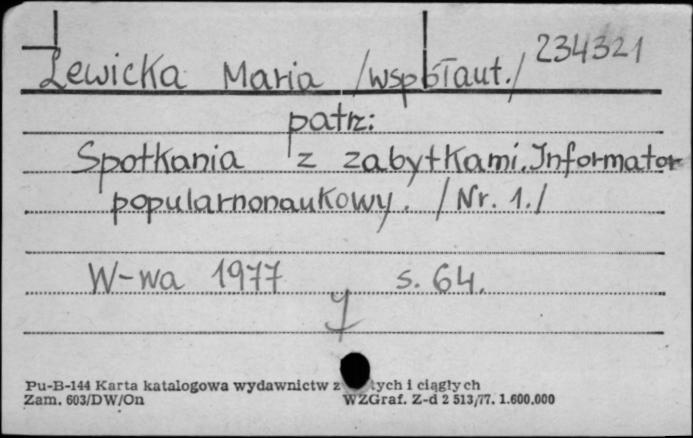 Lewicka Maria /współaut./ 234321
patrz:
Spotkania z zabytkami. Informator
popularnonaukowy. /Nr. 1./
W-wa 1977 s. 64.
Pu-B-144 Karta katalogowa wydawnictw z tych i ciągłych
Zam. 603/DW/On WZGraf. Z-d 2 513/77. 1.600.000